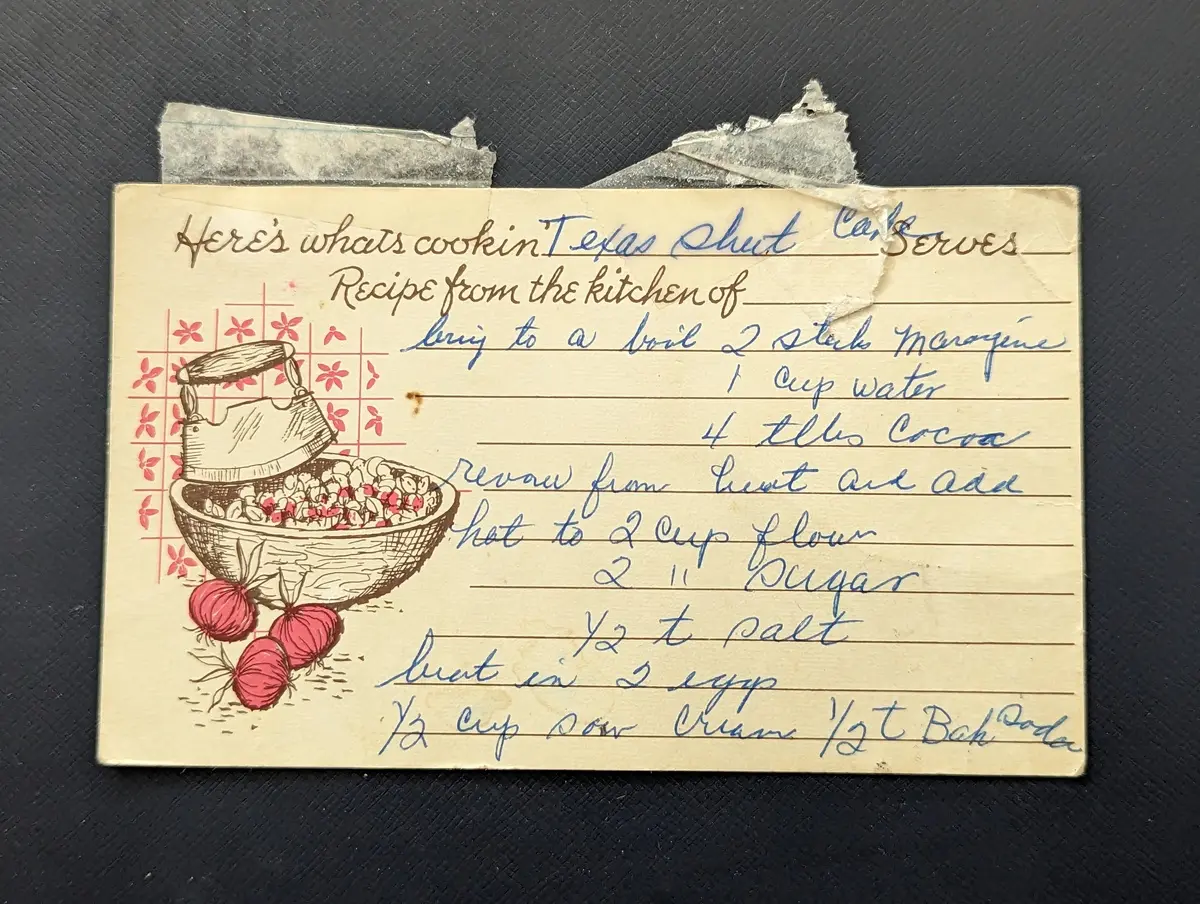 Here's whats cookin' Texas Sheet Cake Serves
Recipe from the kitchen of
bring to a boil 2 sticks Margarine
1 cup water
4 tlbs Cocoa
remove from heat and add
hot to 2 cup flour
2 " sugar
1/2 t salt
beat in 2 eggs
1/2 cup sour cream 1/2 t Bak Soda